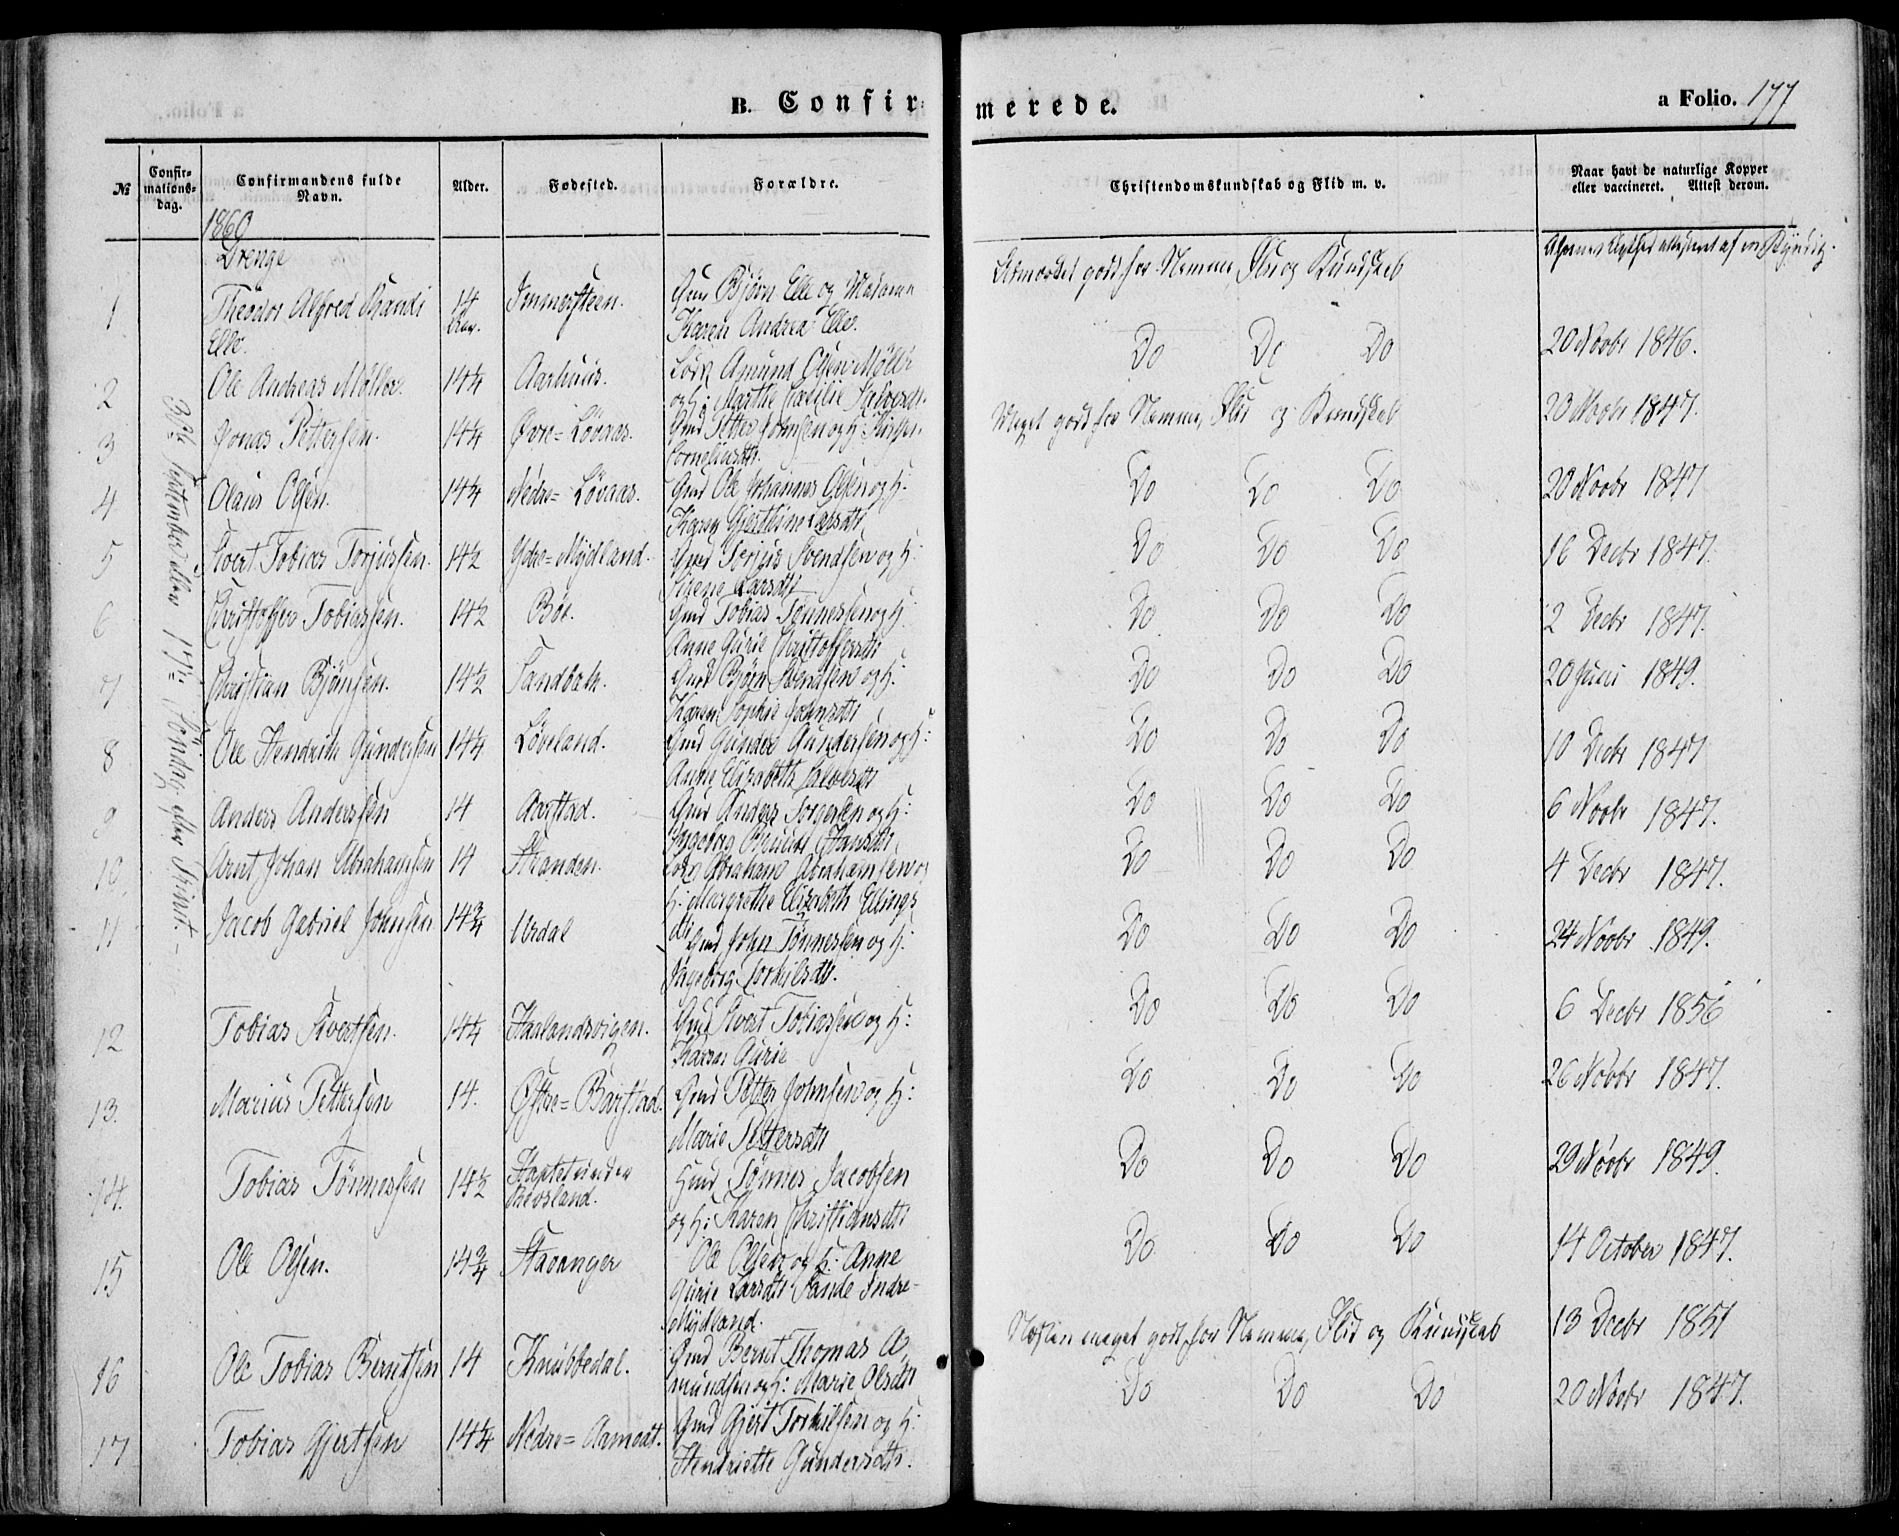 B. Confir-
merede.
a Folio. 177
№
Confir-
mations-
dag.
Confirmandens fulde
Navn.
Alder.
Fødested.
Forældre.
Christendomskundskab og Flid m. v.
Naar havt de naturlige Kopper
eller vaccineret. Attest derom.
1860
Drenge
30te September eller 17de Søndag efter Trinit.
1 Theodor Alfred
Elle.
14
Immersteen.
Gmd Bjørn Elle og Madame
Karen Andrea Elle.
Udmærket godt for Nemme Flid og Kundskab
2 Ole Andreas Møller. 14¼ Aarhuus.
Amund Olsen Møller
og H: Marthe Cæcilie
Do Do Do
20 Novbr 1846.
3 Jonas Pettersen. 14¼ Øvre=Løvaas.
Gmd Petter Johnsen og H:
Corneliusdtr.
Meget godt for Nemme, Flid og Kundskab
23 Novbr 1847.
4 Olaus Olsen. 14¼ Nedre=Løvaas.
Gmd Ole Johannes Olsen og H:
Karen Gjertine Larsdtr
Do Do Do
20 Novbr 1847
5 Sivert Tobias Torjussen. 14½ Ydre=Mydland.
Gmd Torjus Svendsen og H:
Sigene Larsdtr
Do Do Do
16 Decbr 1847.
6 Christoffer Tobiassen. 14½ Bøe.
Gmd Tobias Tønnessen og H:
Anne Gurie Christoffersdtr
Do Do Do
2 Decbr 1847.
7 Christian Bjørnsen. 14½ Sandbæk.
Gmd Bjørn Svendsen og H:
Karen Sophie Johnsdtr
Do Do Do
20 Juni 1849.
8 Ole Hendrik Gundersen 14¼ Løveland.
Gmd Gunder Gundersen og H:
Anne Elizabeth Salvesdtr
Do Do Do
10 Decbr 1847
9 Anders Andersen 14 Aarstad.
Gmd Anders Torgersen og H:
Ingeborg Hansdtr.
Do Do Do
6 Novbr 1847.
10 Arnt Johan Abrahamsen 14 Stranden.
Abraham Abrahamsen og
H: Margrethe Elizabeth Ellings
dtr
Do Do Do
4 Decbr 1847.
11 Jacob Gabriel Johnsen 14¾ Urdal
Gmd John Tønnessen og H:
Ingeborg Torkilsdtr.
Do Do Do
24 Novbr 1849.
12 Tobias Sivertsen. 14¼ Haalandsvigen.
Gmd Sivert Tobiassen og H:
Karen Gurie
Do Do Do
6 Decbr 1856
13. Marius Pettersen 14. Østre=Barstad.
Gmd Petter Johnsen og H:
Marie Pettersdtr
Do Do Do
26 Novbr 1847.
14. Tobias Tønnessen 14½
Gmd Tønnes Jacobsen
og H: Karen Christiansdtr
Do Do Do
29 Novbr 1849.
15 Ole Olsen. 14¾ Stavanger
Ole Olsen og H: Anne
Gurie Larsdtr Sande Indre-
Mydland.
Do Do Do
14 October 1847.
16 Ole Tobias Berntsen 14 Knubbedal.
Gmd Bernt Thomas A-
mundsen og H: Marie Olsdtr
Næsten meget godt for Nemme, Flid og Kundskab
13 Decbr 1851
17 Tobias Gjertsen 14¼ Nedre=Aamodt.
Gmd Gjert Torkilsen og H:
Hendriette Gundersdtr.
Do Do Do
20 Novbr 1847.